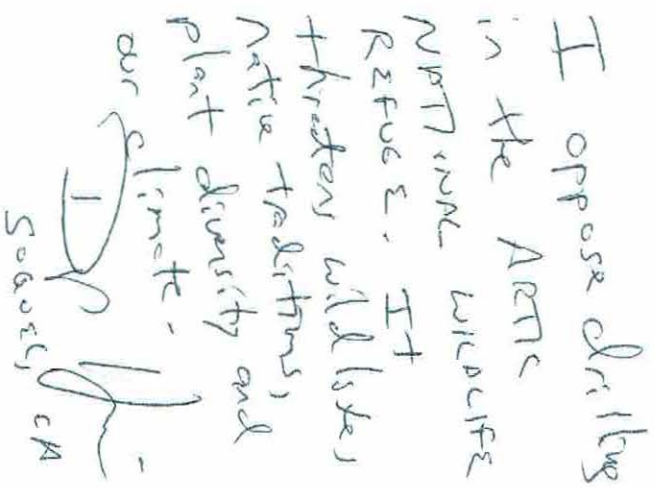 I oppose drilling
in the ARTIC
NATIONAL WILDLIFE
REFUGE. It
threatens wildlife,
native traditions,
plant diversity and
our climate.
Soquel, CA